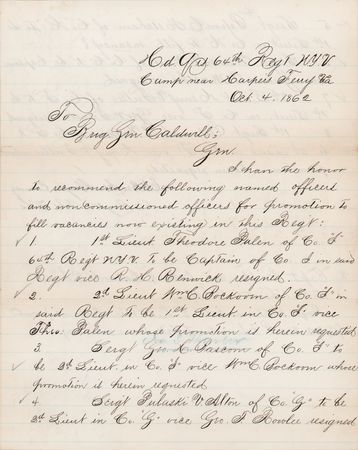 Hd Qrs 64th Regt N.Y.V
Camp near Harpers Ferry Va
Oct. 4. 1862
To
Brig Gen Caldwell;
Gen.
I have the honor
to recommend the following named officers
and noncommissioned officers for promotion to
fill vacancies now existing in this Regt:
1 1st Lieut Theodore Palen of Co. "F"
64th Regt N.Y.V. To be Captain of Co. F in said
Regt vice R. H. Renwick resigned.
2. 2d Lieut Wm C. Bockoven of Co. "F" in
said Regt to be 1st Lieut in Co. "F" vice
Theo. Palen whose promotion is herein requested
3. Sergt Geo. K. Pascom of Co. "F" to
be 2d Lieut in Co. "F" vice Wm C. Bockoon whose
promotion is herein requested
4 Sergt Pulaski V. Alton of Co. "G" to be
2d Lieut in Co. "G" vice Geo. F. Bowlee resigned